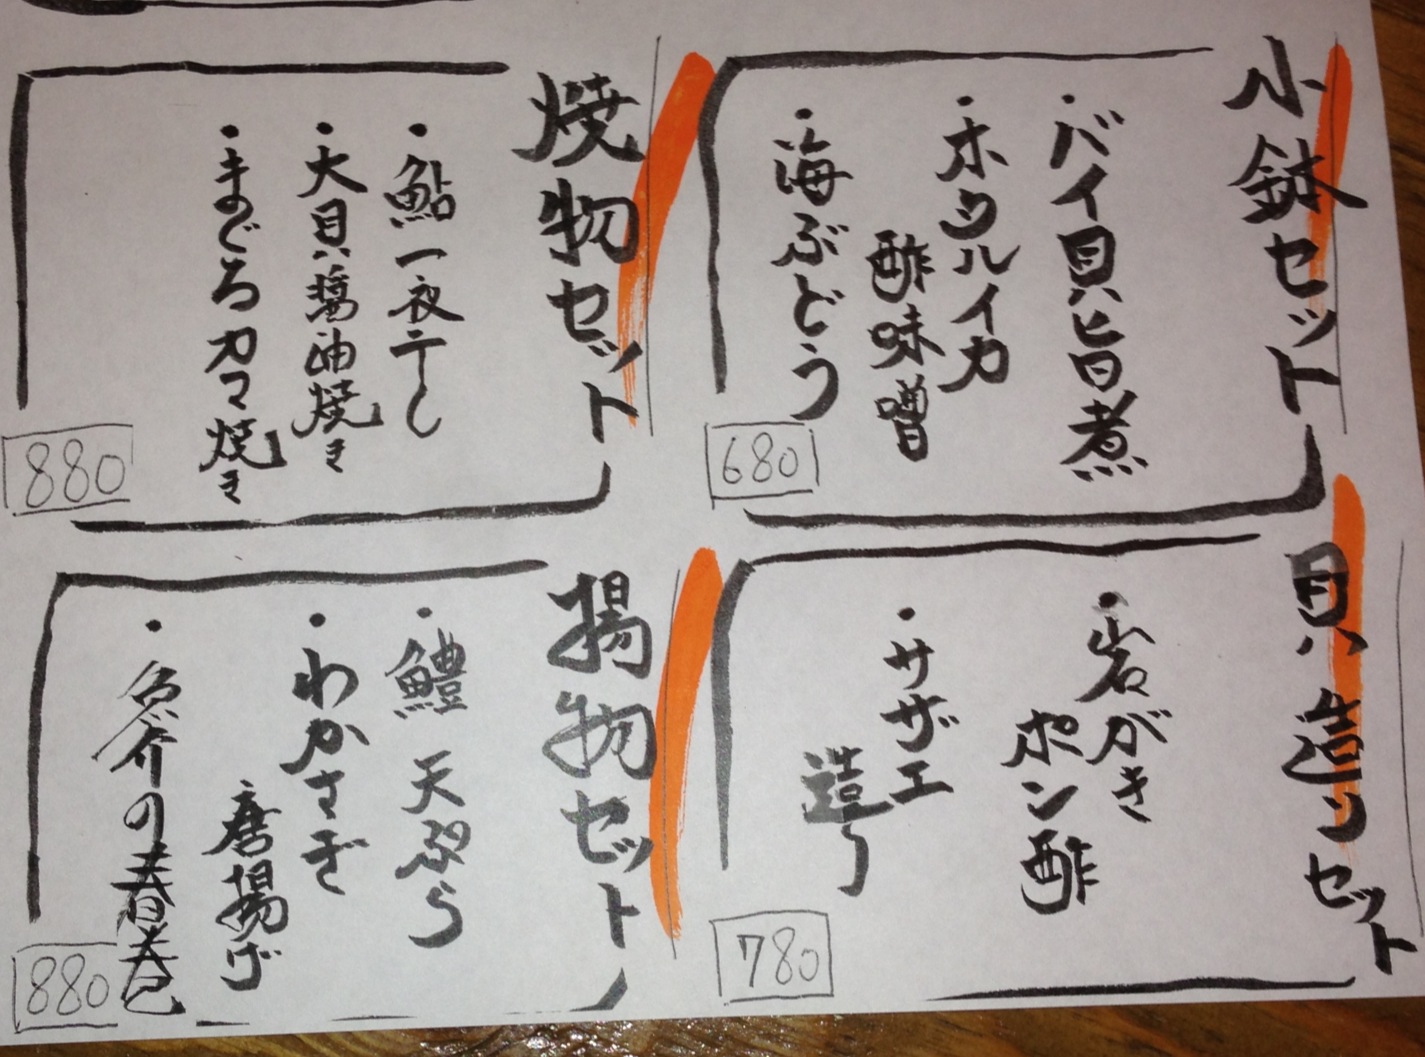 小鉢セット
・バイ貝旨煮
・ホタルイカ
酢味噌
・海ぶどう
680
焼物セット
・鮎一夜干し
・大貝醤油焼き
・まぐろカマ焼き
880
貝造りセット
・岩がき
ポン酢
・サザエ
造り
780
揚物セット
・鱧 天ぷら
・わかさぎ
唐揚げ
・魚介の春巻
880